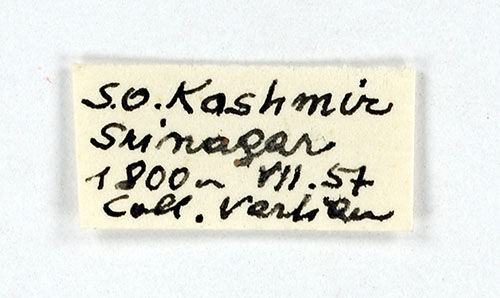 S.O. Kashmir
Srinagar
1800m VII.57
Coll. Vartian